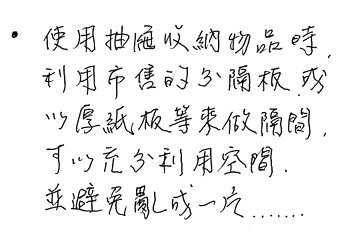 • 使用抽屜收納物品時,
利用市售的分隔板,或
以厚紙板等來做隔間,
可以充分利用空間.
並避免亂成一片.......